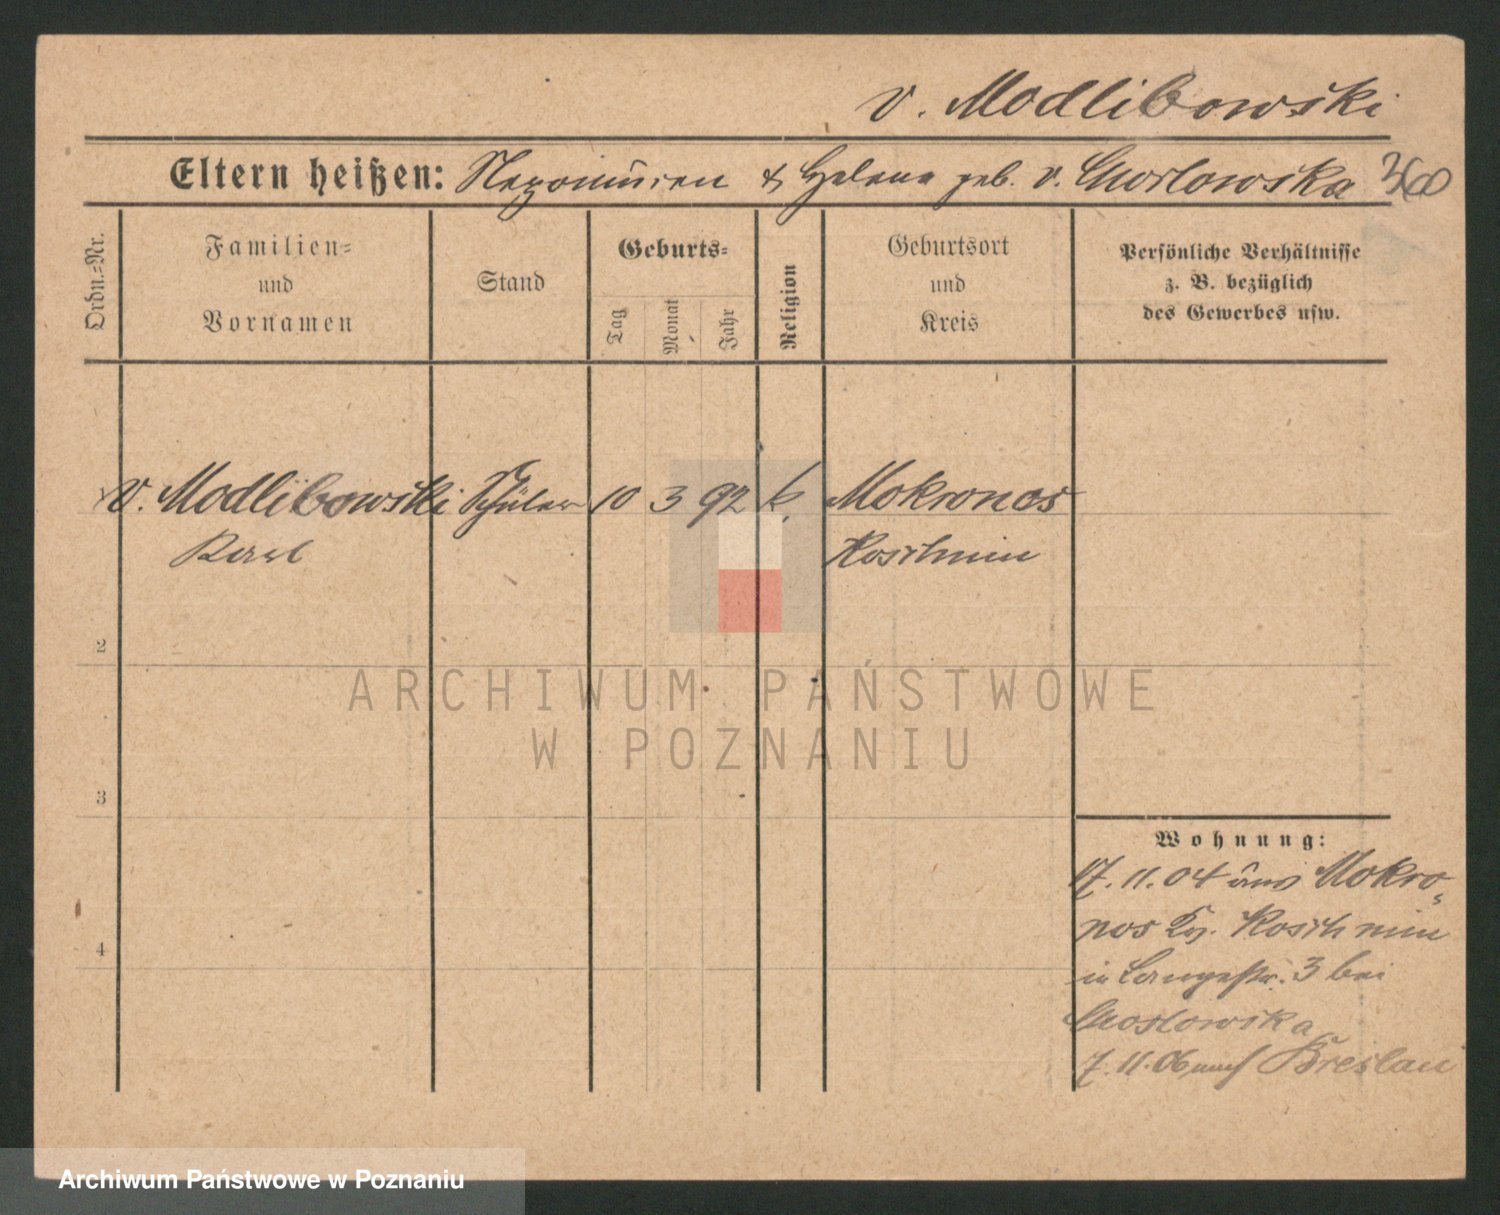 v. Modlibowski
Eltern heißen: Nepomucen & Helena geb. v. 360
Ordn.=Nr.
Familien=
und
Vornamen
Stand
Geburts=
Tag
Monat
Jahr
Religion
Geburtsort
und
Kreis
Persönliche Verhältnisse
z. B. bezüglich
des Gewerbes usw.
v. Modlibowski Schüler 10 3 92 k. Mokronos
Karl Koschmin
2
3
4
Wohnung:
17. 11. 04 aus Mokro=
nos Kr. Koschmin
in Langestr. 3 bei
7. 11. 06 nach Breslau
ARCHIWUM PAŃSTWOWE
W POZNANIU
Archiwum Państwowe w Poznaniu